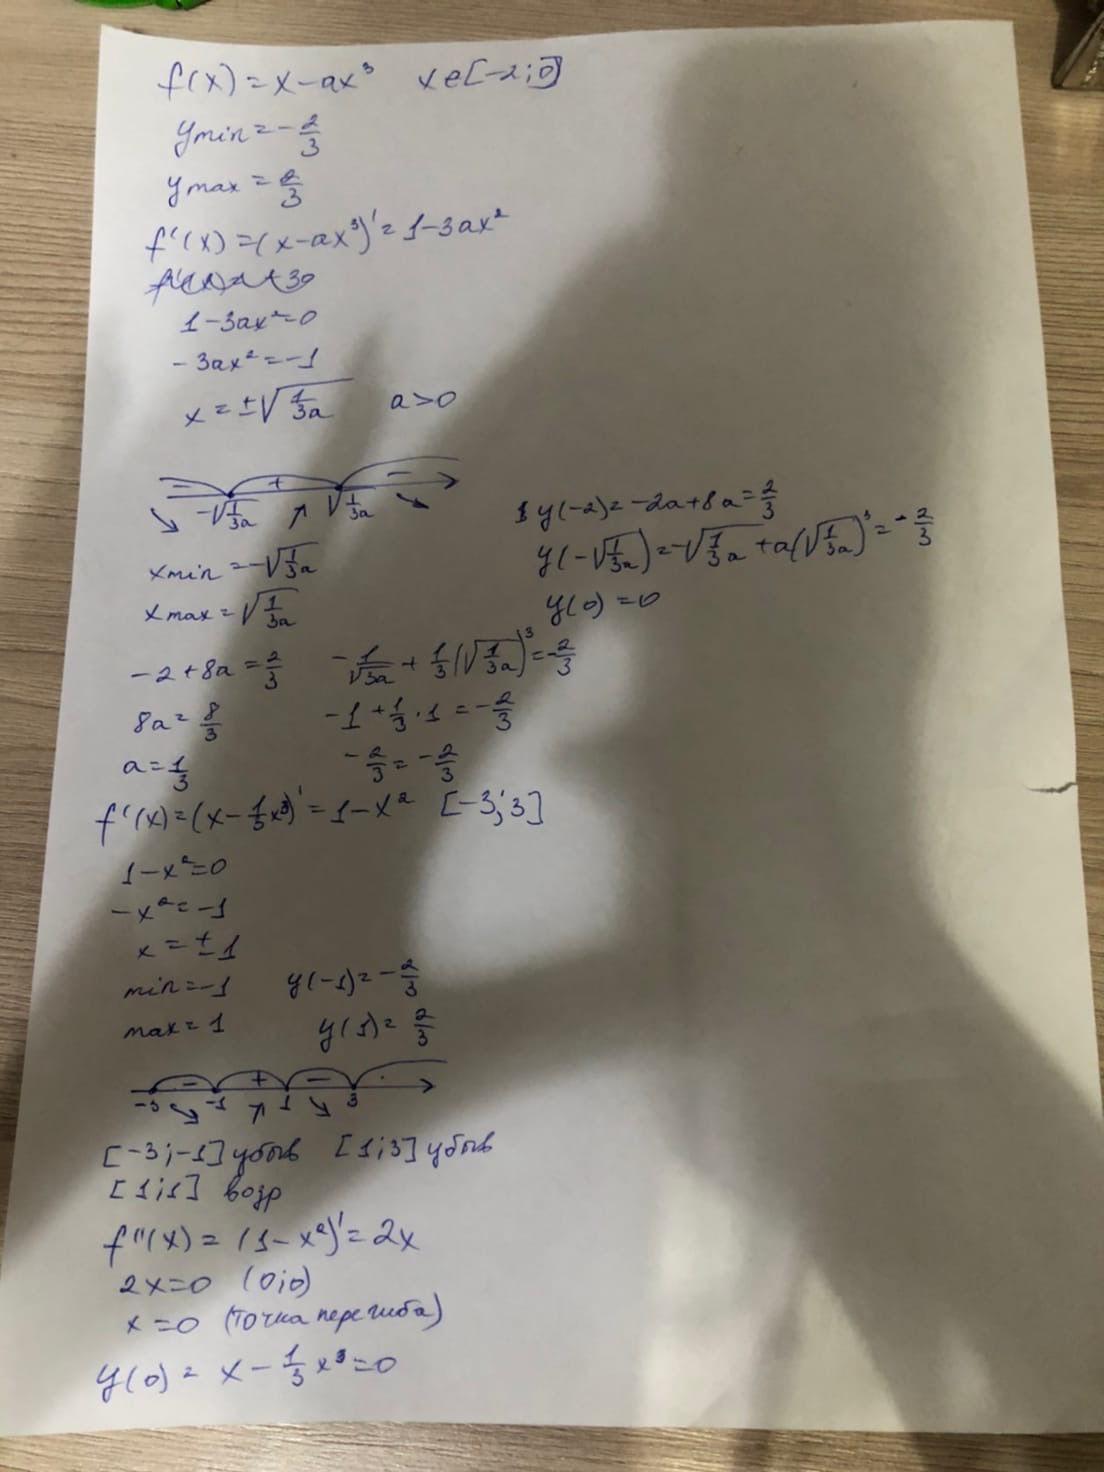 f(x) = x - ax³   x ∈ [-2; 0]
y min = -2/3
y max = 2/3
f'(x) = (x - ax³)' = 1 - 3ax²
1 - 3ax² = 0
-3ax² = -1
x = ±√(1/3a)   a > 0
- + -
-√(1/3a)   √(1/3a)
x min = -√(1/3a)
x max = √(1/3a)
y(-2) = -2a + 8a = 2/3
y(-√(1/3a)) = -√(1/3a) + a(√(1/3a))³ = -2/3
y(0) = 0
-2 + 8a = 2/3   -1/√3a + 1/3(√(1/3a))³ = -2/3
8a = 8/3   -1 + 1/3 · 1 = -2/3
a = 1/3   -2/3 = -2/3
f'(x) = (x - 1/3x³)' = 1 - x²   [-3; 3]
1 - x² = 0
-x² = -1
x = ±1
min = -1   y(-1) = -2/3
max = 1   y(1) = 2/3
- + -
-3 -1 1 3
[-3; -1] убыв   [1; 3] убыв
[1; 1] возр
f''(x) = (1 - x²)' = 2x
2x = 0   (0; 0)
x = 0 (точка перегиба)
y(0) = x - 1/3 x³ = 0